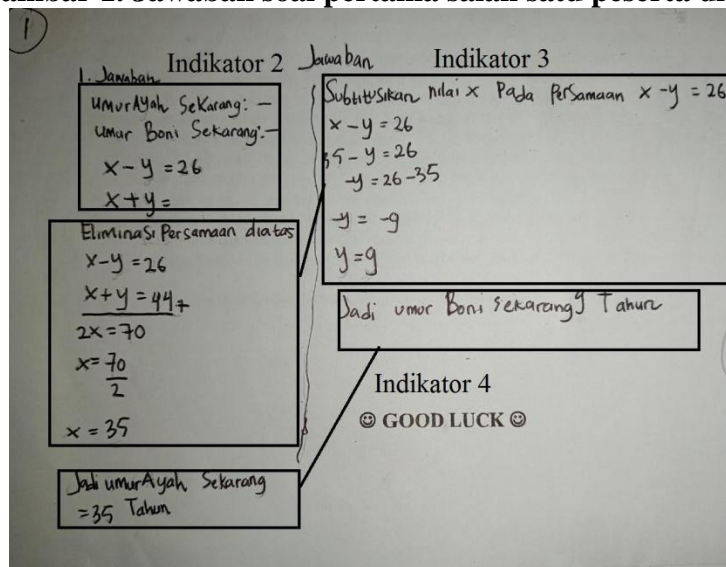 1
Indikator 2
1. Jawaban
Umur Ayah Sekarang: –
Umur Boni Sekarang: –
x - y = 26
x + y =
Eliminasi Persamaan diatas
x - y = 26
x + y = 44 +
2x = 70
x = 70
2
x = 35
Jadi umur Ayah Sekarang
= 35 Tahun
Jawaban
Indikator 3
Subtitusikan nilai x Pada Persamaan x - y = 26
x - y = 26
35 - y = 26
-y = 26 - 35
-y = -9
y = 9
Jadi umur Boni Sekarang 9 Tahun
Indikator 4
☺ GOOD LUCK ☺